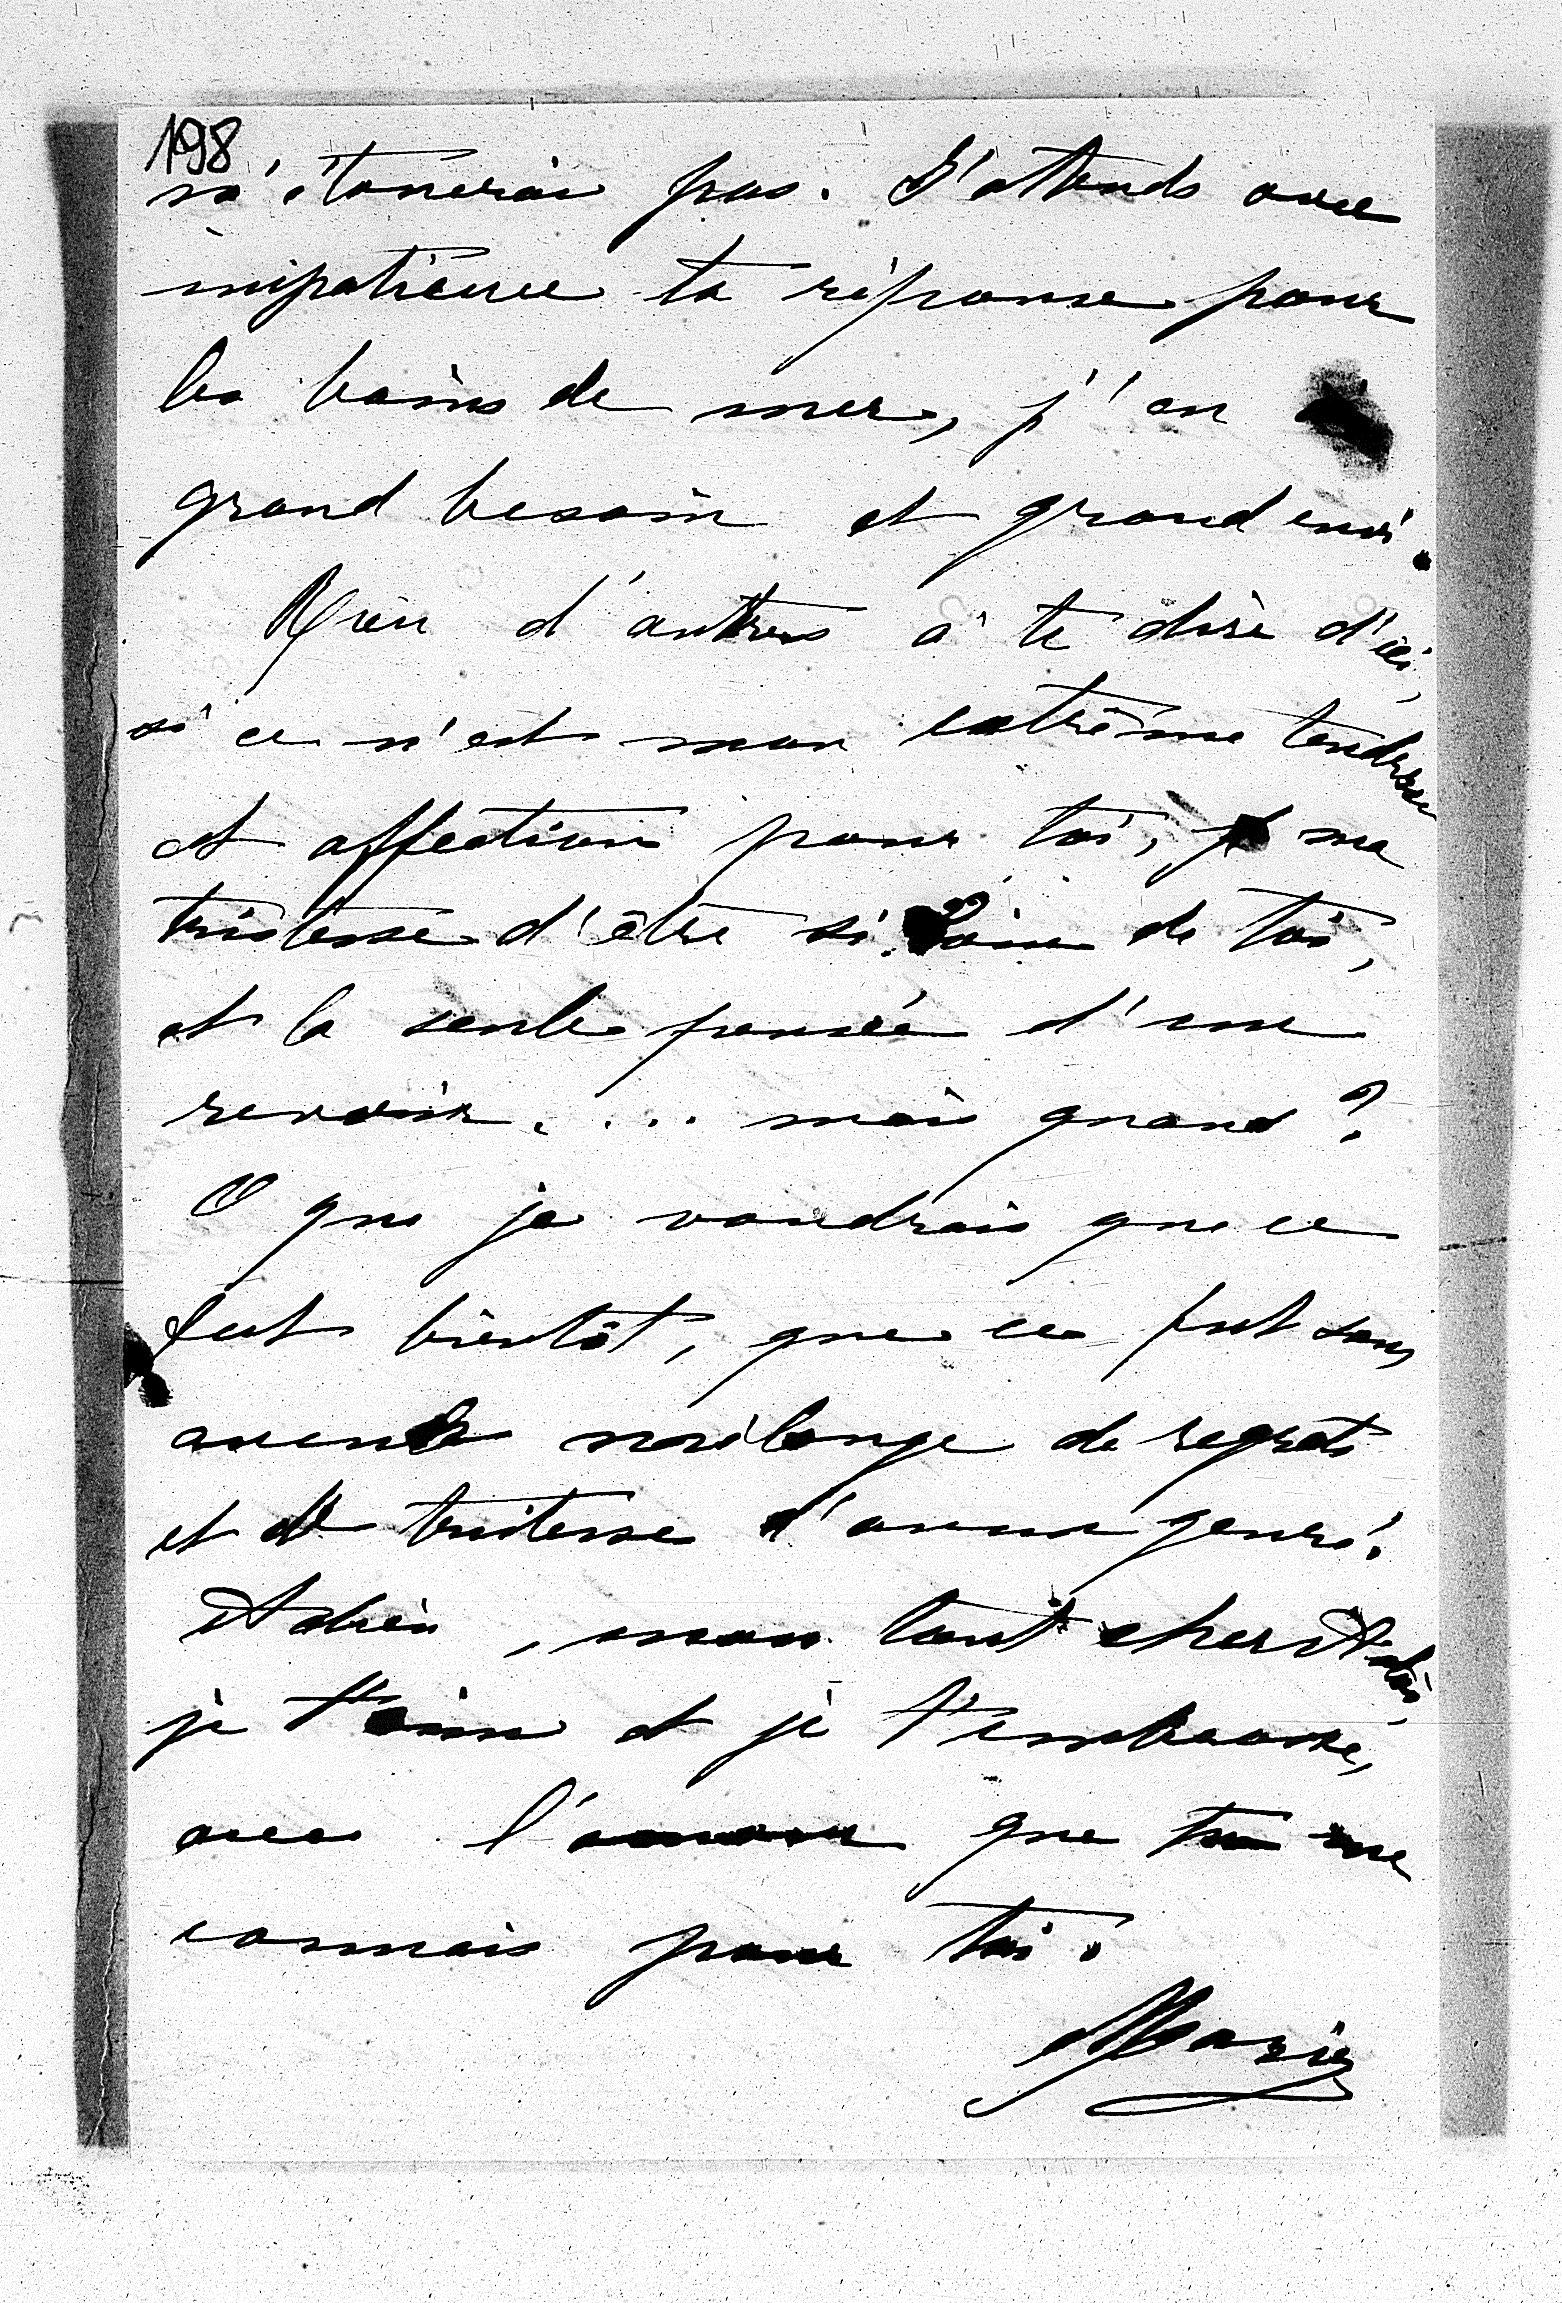 198
m'étonerais pas. J'attends avec
impatience ta réponse pour
les bains de mer, j'en ai
grand besoin et grand envi.
Rien d'autres à te dire d'ici,
si ce n'est mon extrême tendresse
et affection pour toi, ma
tristesse d'être si loin de toi,
et la seule pensée d'un
revoir.... mais quand?
O que je voudrais que ce
fut bientôt, que ce fut sans
aucun mélange de regrets
et de tristesse d'aucun genre!
Adieu, mon tout cher Adolo,
je t'aime et je t'embrasse,
avec l'amour que tu me
connais pour toi.
Marie